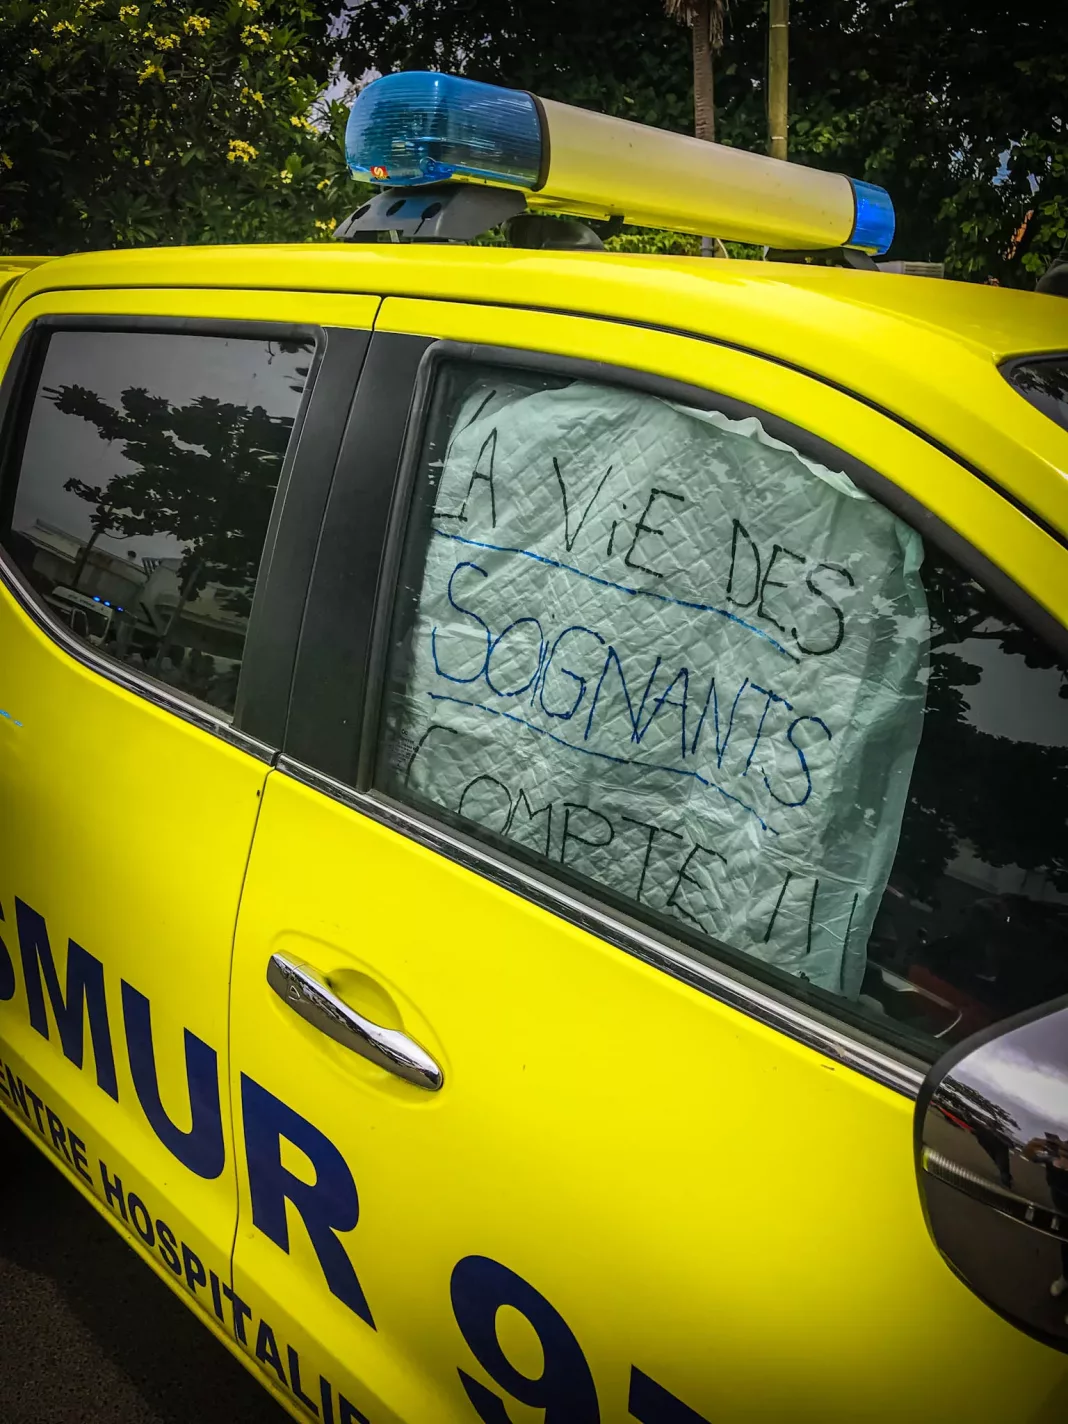 LA ViE DES
SOiGNANTS
COMPTE !!!
SMUR 97
CENTRE HOSPITALIER